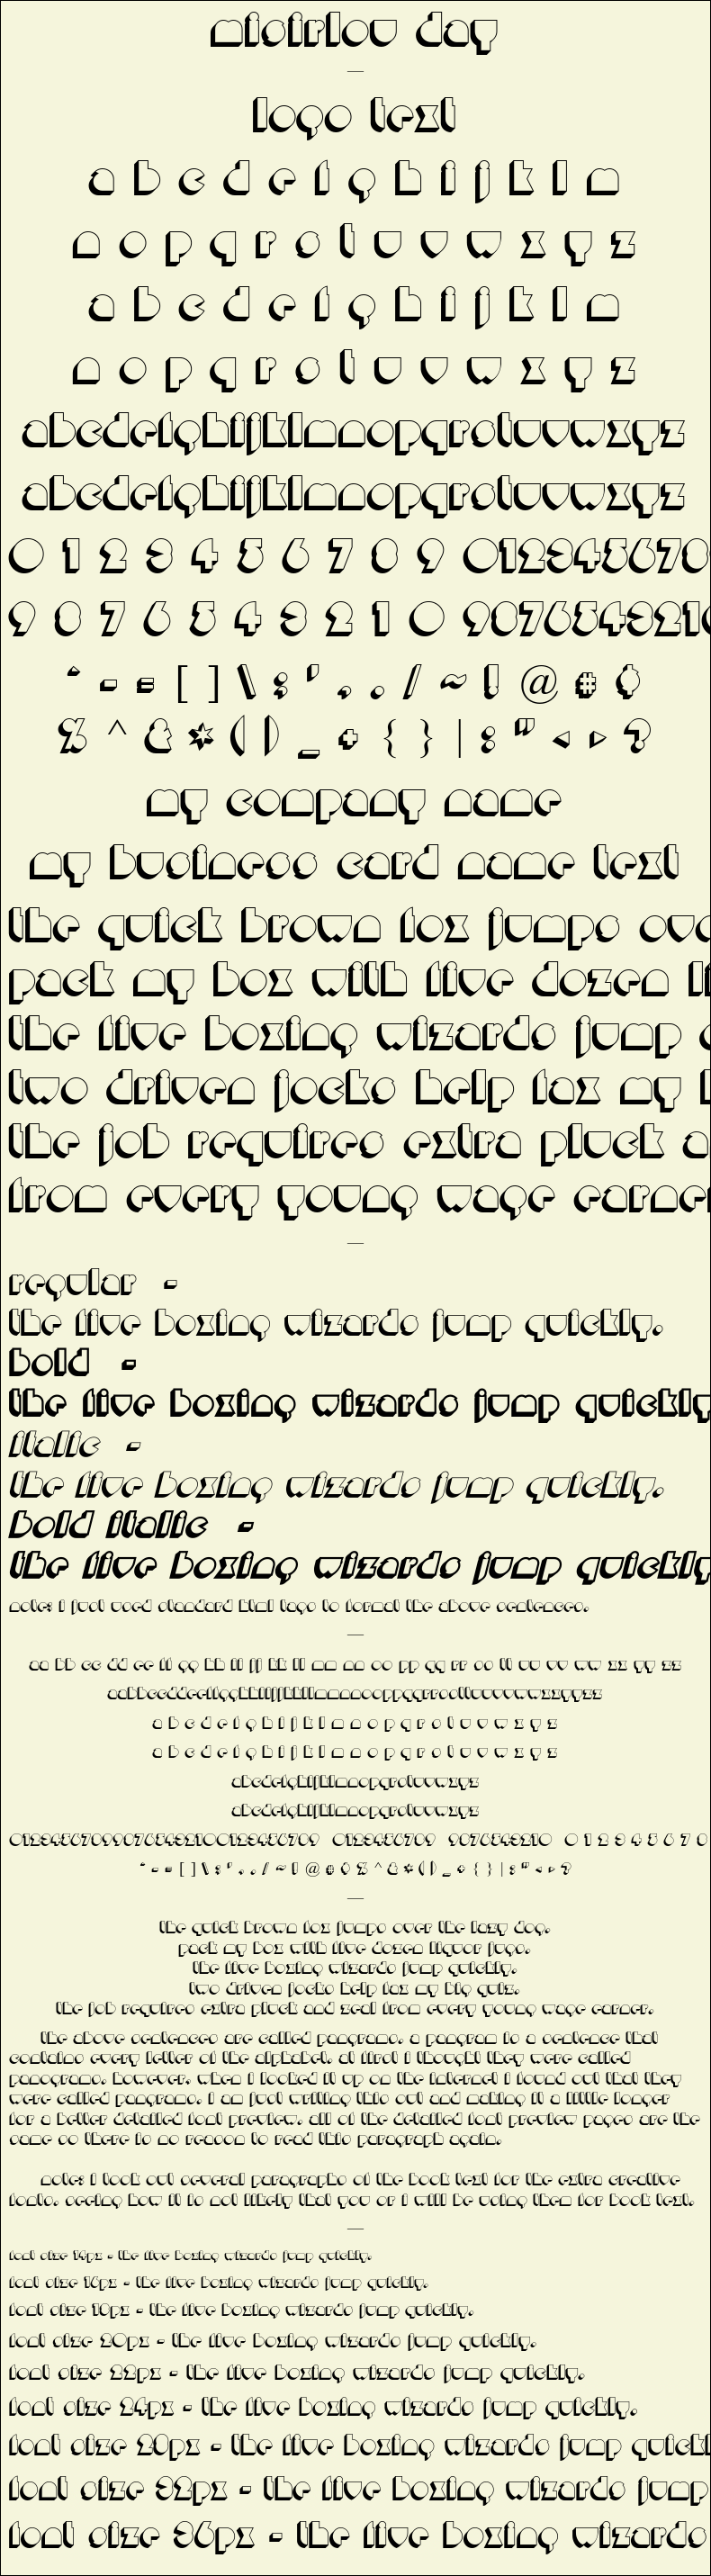 misirlou day
—
logo text
a b c d e f g h i j k l m
n o p q r s t u v w x y z
a b c d e f g h i j k l m
n o p q r s t u v w x y z
abcdefghijklmnopqrstuvwxyz
abcdefghijklmnopqrstuvwxyz
0 1 2 3 4 5 6 7 8 9 012345678
9 8 7 6 5 4 3 2 1 0 987654321
` - = [ ] \ ; ' , . / ~ ! @ # $
% ^ & * ( ) _ + { } | : " < > ?
my company name
my business card name text
the quick brown fox jumps ove
pack my box with five dozen li
the five boxing wizards jump
two driven jocks help fax my
the job requires extra pluck a
from every young wage earner
—
regular -
the five boxing wizards jump quickly.
bold -
the five boxing wizards jump quickly
italic -
the five boxing wizards jump quickly.
bold italic -
the five boxing wizards jump quickly
note: i just used standard html tags to format the above sentences.
—
aa bb cc dd ee ff gg hh ii jj kk ll mm nn oo pp qq rr ss tt uu vv ww xx yy zz
aabbccddeeffgghhiijjkkllmmnnooppqqrrssttuuvvwwxxyyzz
a b c d e f g h i j k l m n o p q r s t u v w x y z
a b c d e f g h i j k l m n o p q r s t u v w x y z
abcdefghijklmnopqrstuvwxyz
abcdefghijklmnopqrstuvwxyz
012345678998765432100123456789 0123456789 9876543210 0 1 2 3 4 5 6 7 8
` - = [ ] \ ; ' , . / ~ ! @ # $ % ^ & * ( ) _ + { } | : " < > ?
—
the quick brown fox jumps over the lazy dog.
pack my box with five dozen liquor jugs.
the five boxing wizards jump quickly.
two driven jocks help fax my big quiz.
the job requires extra pluck and zeal from every young wage earner.
the above sentences are called pangrams. a pangram is a sentence that
contains every letter of the alphabet. at first i thought they were called
panograms. however, when i looked it up on the internet i found out that they
were called pangrams. i am just writing this out and making it a little longer
for a better detailed font preview. all of the detailed font preview pages are the
same so there is no reason to read this paragraph again.
note: i took out several paragraphs of the book text for the extra creative
fonts. seeing how it is not likely that you or i will be using them for book text.
—
font size 14px - the five boxing wizards jump quickly.
font size 16px - the five boxing wizards jump quickly.
font size 18px - the five boxing wizards jump quickly.
font size 20px - the five boxing wizards jump quickly.
font size 22px - the five boxing wizards jump quickly.
font size 24px - the five boxing wizards jump quickly.
font size 28px - the five boxing wizards jump quickl
font size 32px - the five boxing wizards jump
font size 36px - the five boxing wizards